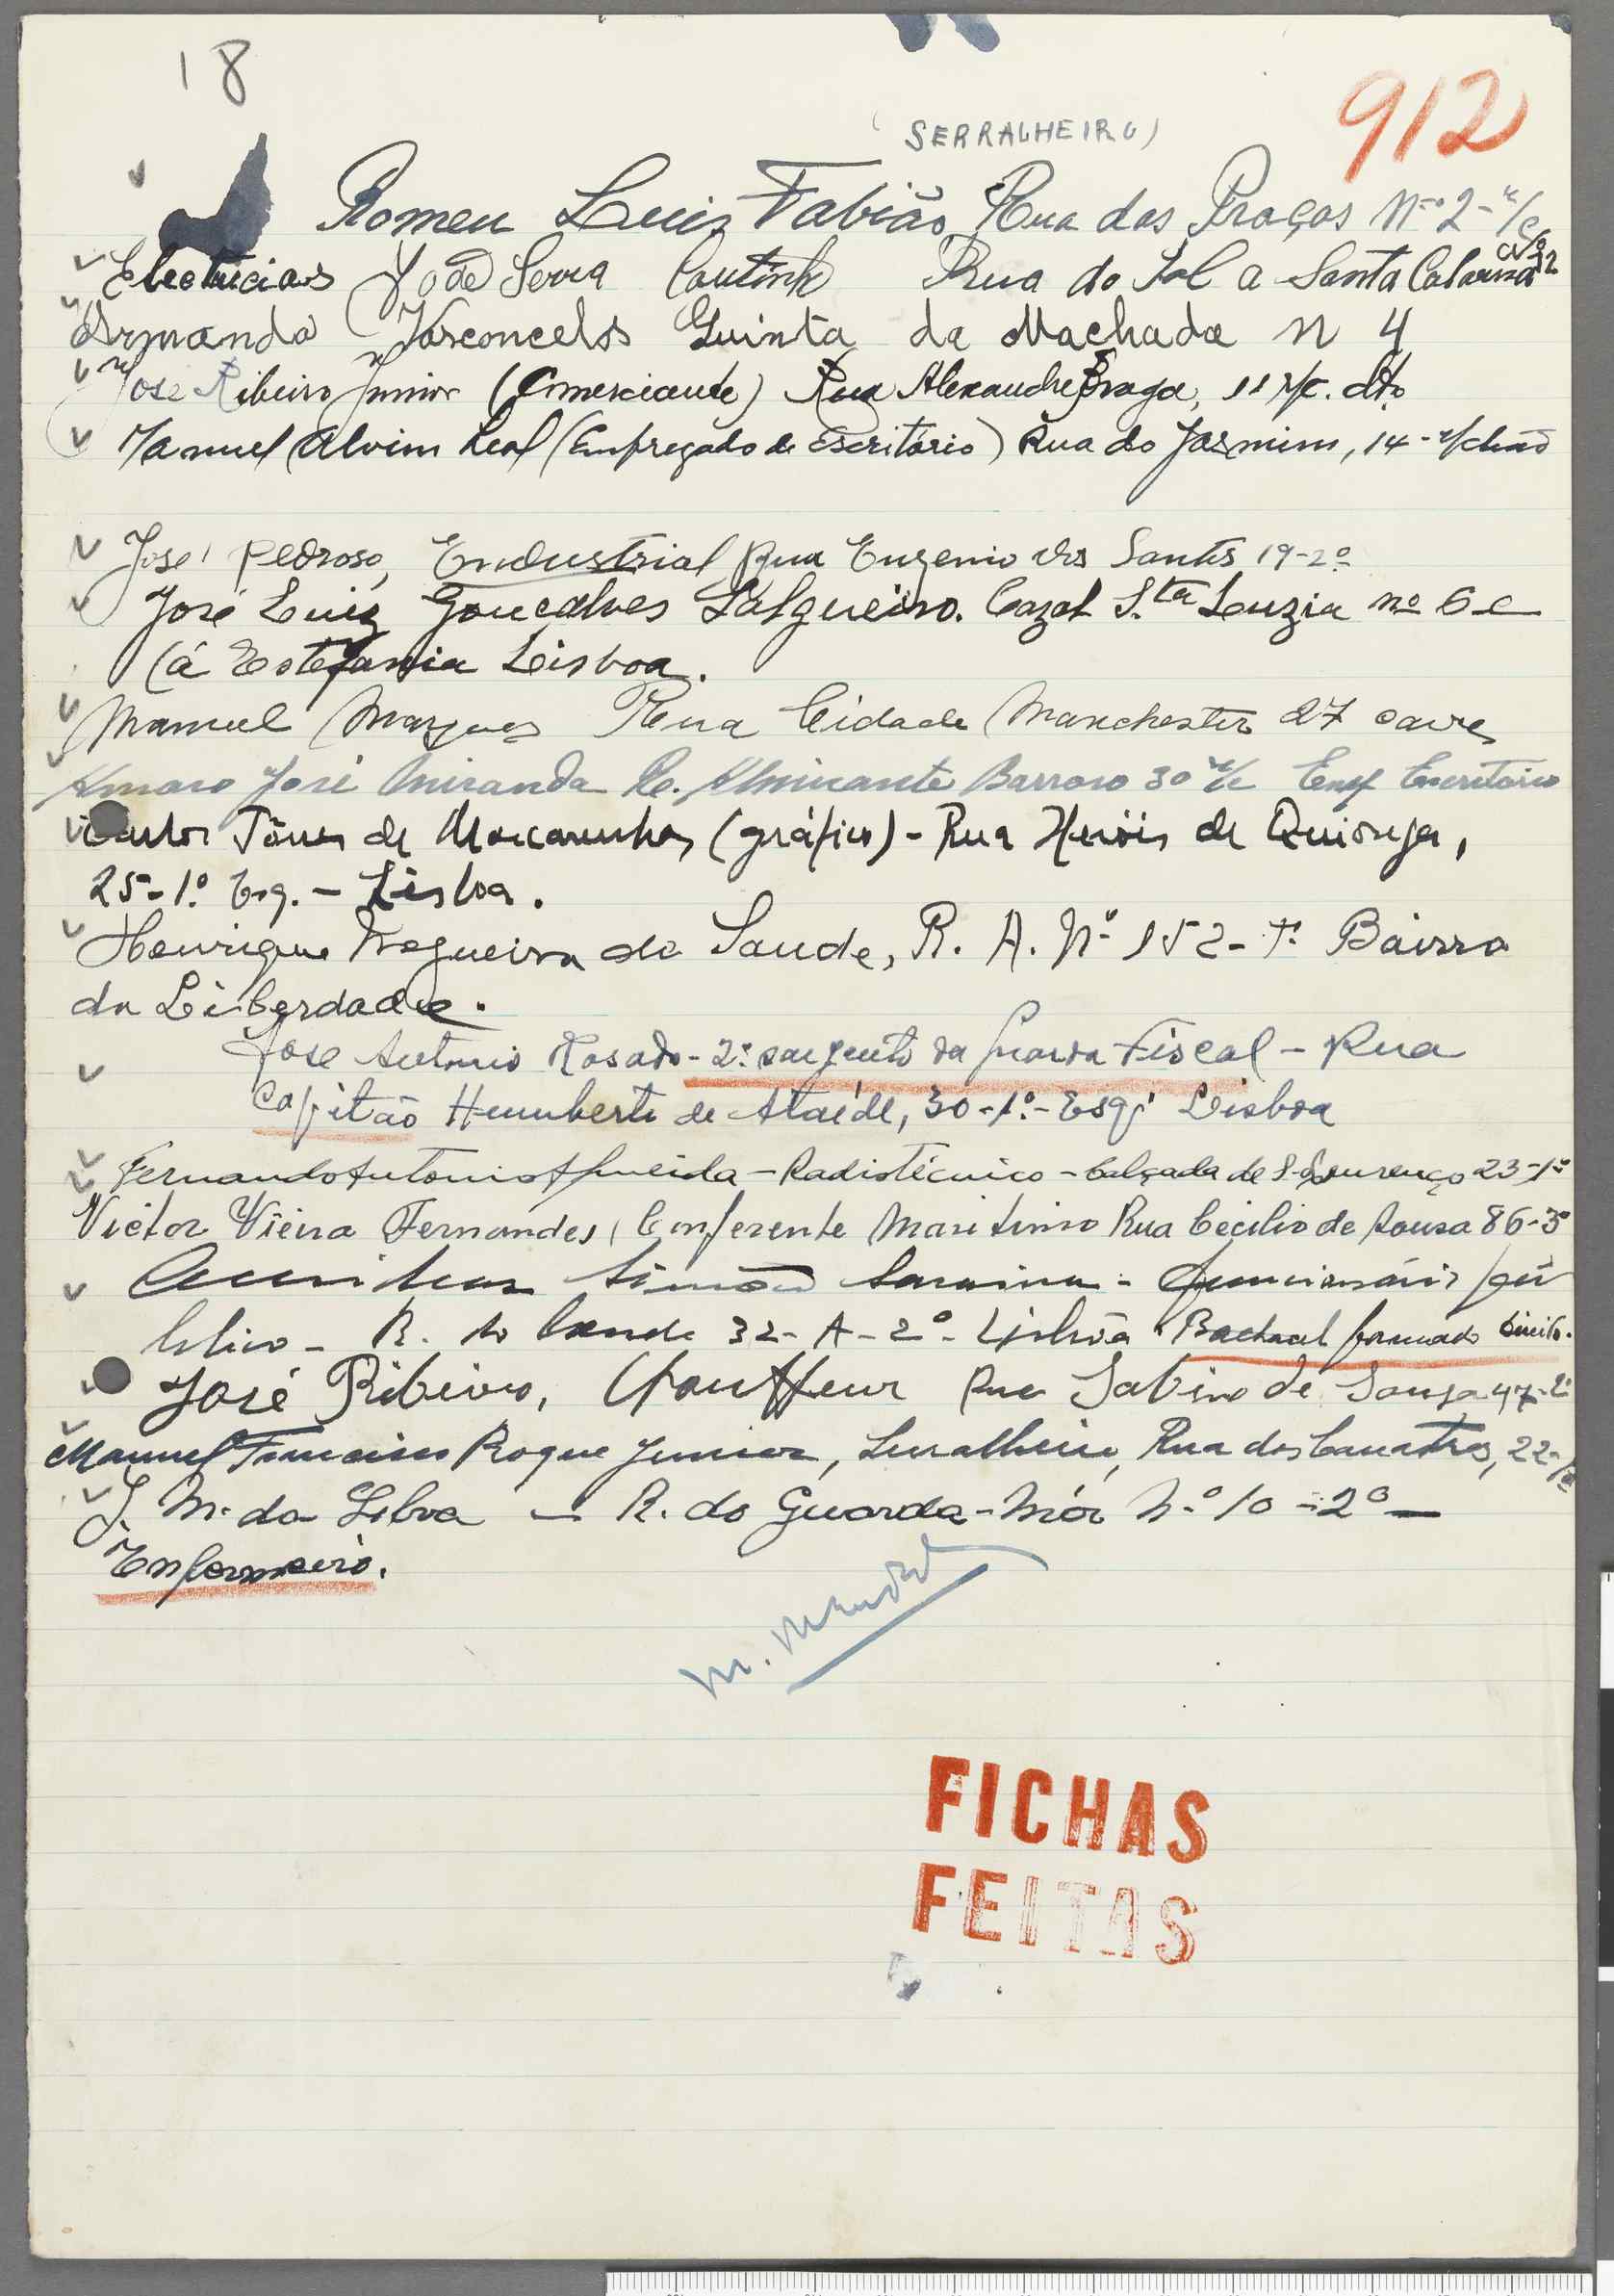 18
912
(SERRALHEIRO)
Romeu Luis Fabião Rua das Praças Nº 2 - r/c
Electricias José Serra Coutinho Rua do Sol a Santa Catarina
Armando Vasconcelos Quinta da Machada n 4
José Ribeiro Junior (Comerciante) Rua Alexandre Braga, 11 r/c. dto
Manuel Alvim Leal (Empregado de Escritório) Rua do Jasmim, 14 - r/chão
José Pedroso, Endustrial Rua Eugenio dos Santos 19-2º
José Luiz Gonçalves Salgueiro. Cazal S.ta Luzia nº 6
(á Estefania Lisboa.
Manuel Marques Rua Cidade Manchester 27 cave
Amaro José Miranda R. Almirante Barroso 30 r/c Emp Escritório
Torres de Mascarenhas (gráfico) - Rua Heróis de Quionga,
25-1º Esq. - Lisboa.
Henrique Nogueira da Saude, R. A. Nº 152 - Bairro
da Liberdade.
José Antonio Rosado - 2º sargento da Guarda Fiscal - Rua
Capitão Humberto de Ataíde, 30-1º-Esqº Lisboa
Fernando Antonio Almeida - Radiotécnico - Calçada de S. Lourenço 23-1º
Victor Vieira Fernandes, Conferente Maritimo Rua Cecilio de Sousa 86-3º
Simão Saraiva - funcionário pú
blico - R. do Conde 32-A-2º - Lisboa Bacharel formado direito.
José Ribeiro, Chauffeur Rua Sabino de Sousa 47-2º
Manuel Francisco Roque Junior, Serralheiro, Rua das Canastras, 22-
J. M. da Silva - R. do Guarda-Mór Nº 10 - 2º -
Enfermeiro.
FICHAS
FEITAS